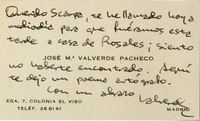 Querido Scarpa, te he llamado hoy a
mediodía para que fuéramos esta
tarde a casa de Rosales; siento
JOSÉ Mª. VALVERDE PACHECO
no haberte encontrado. Aquí
te dejo un poema autógrafo.
Con un abrazo Valverde
EGA, 7. COLONIA EL VISO
TELÉF. 26 81 61
MADRID